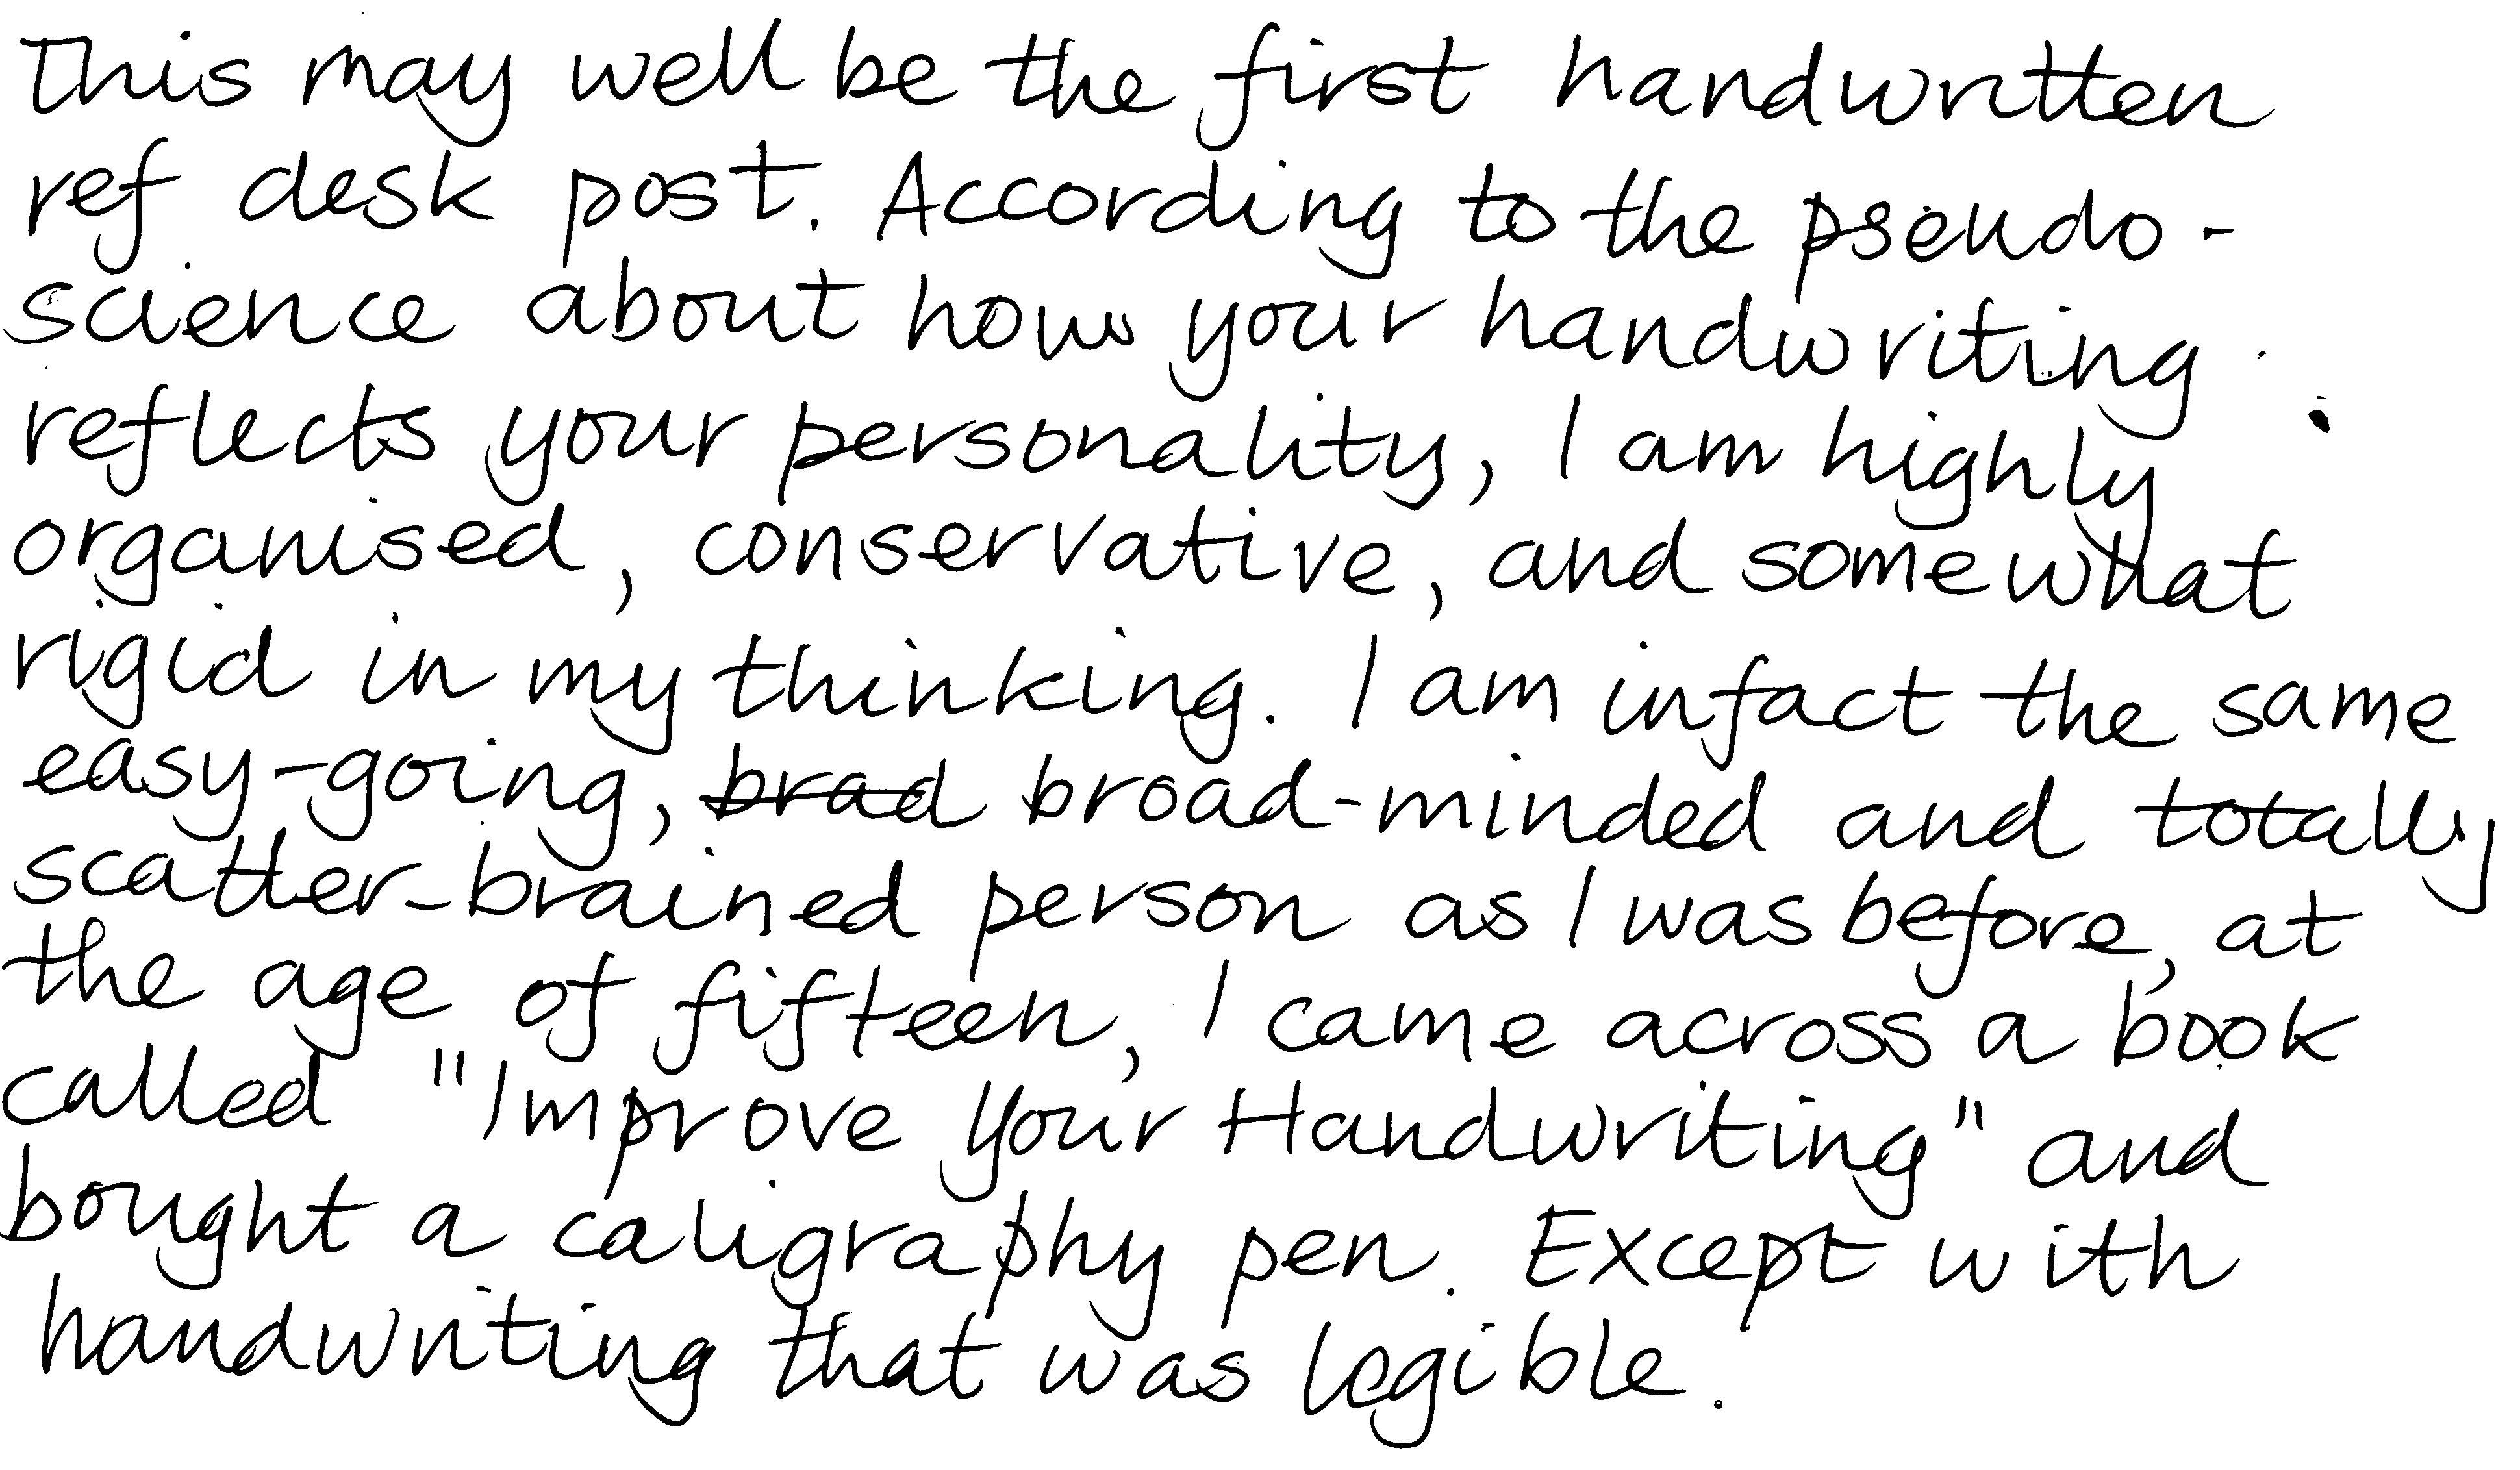 This may well be the first handwritten
ref desk post. According to the pseudo-
science about how your handwriting
reflects your personality, I am highly
organised, conservative, and somewhat
rigid in my thinking. I am infact the same
easy-going, brad broad-minded and totally
scatter-brained person as I was before, at
the age of fifteen, I came across a book
called "Improve your Handwriting" and
bought a caligraphy pen. Except with
handwriting that was legible.